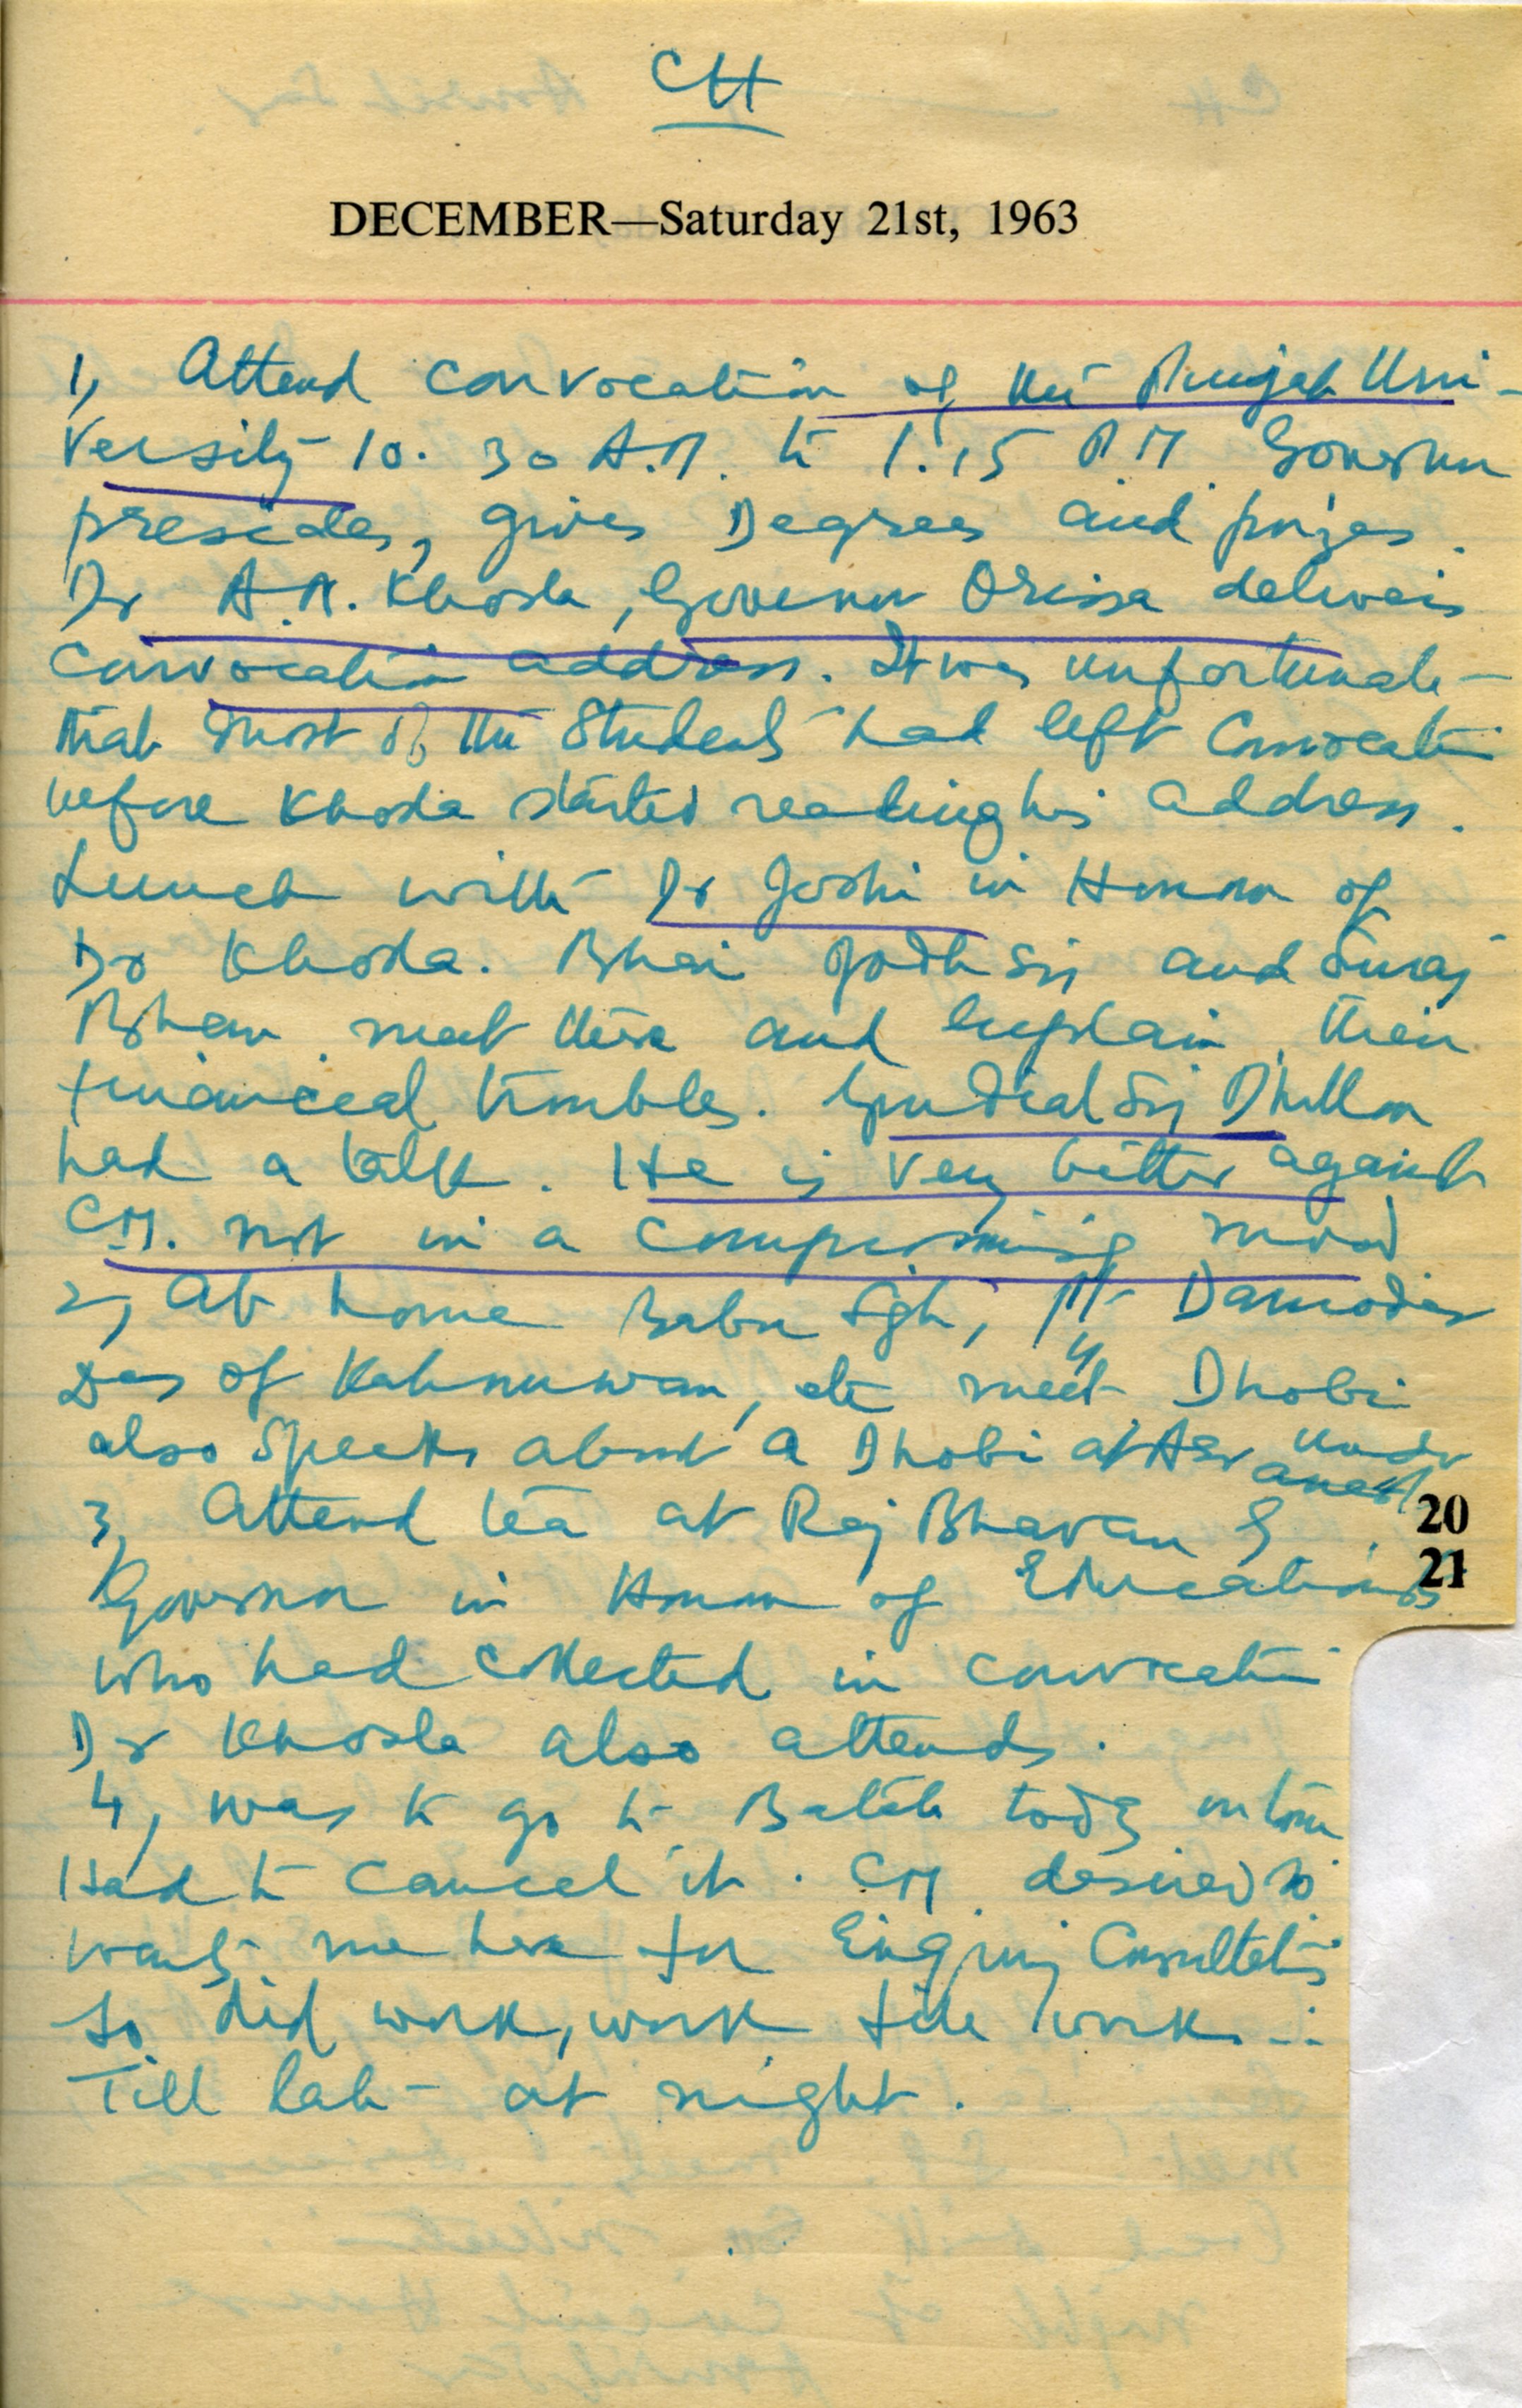 CH
DECEMBER—Saturday 21st, 1963
1, Attend convocation of the Punjab Uni-
versity 10.30 A.M. to 1.15 P.M. Governor
presides, gives Degrees and prizes.
Dr A.N. Khosla, Governor Orissa delivers
convocation address. It was unfortunate
that most of the students had left Convocation
before Khosla started reading his address.
Lunch with Dr Joshi in Honour of
Dr Khosla. Bhai Jodh Sing and Suraj
Bhan meet there and explain their
financial troubles. Gurdial Sing Dhillon
had a talk. He is very bitter against
CM. not in a compromising mood
2, At home Babu Sgh, Damodar
Das of Kahnuwan, etc meet Dhobi
also speaks about a Dhobi at Asr under
arrest
3, Attend tea at Raj Bhavan by
Governor in Honour of Educationists
who had collected in convocation
Dr Khosla also attends.
4, was to go to Batala today on tour
Had to cancel it. CM desired so
wants me here for Consultations
So did work, work file work...
Till late at night.
20
21